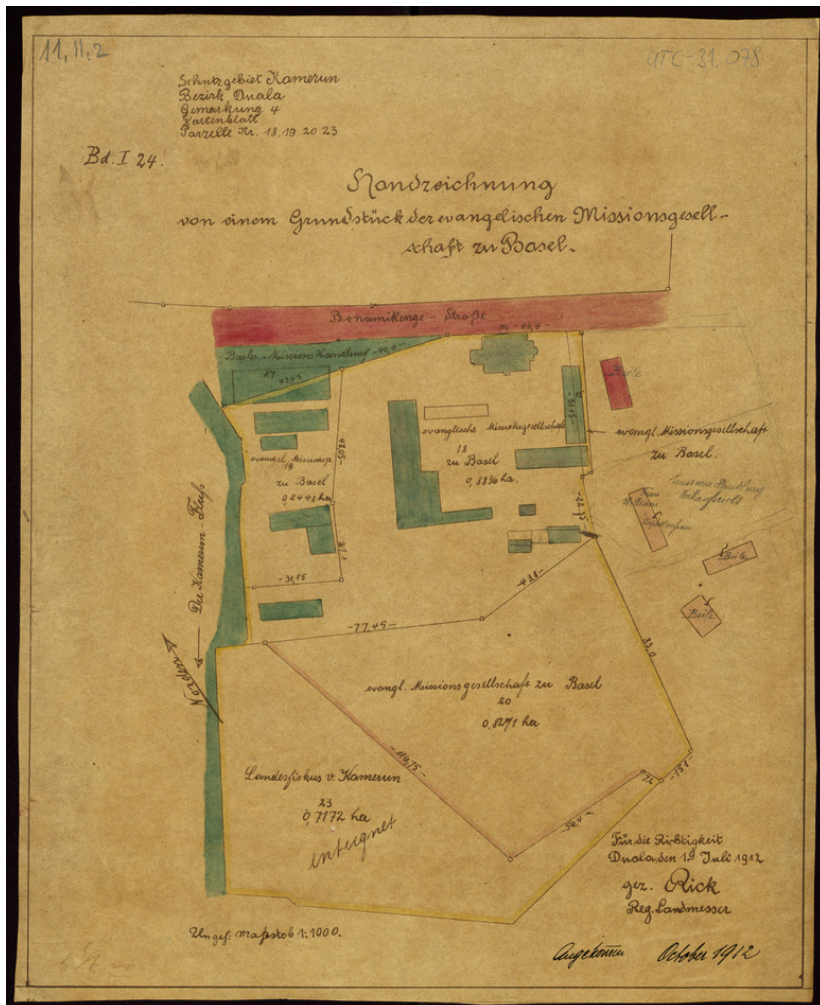 11, 11, 2
UTC-31.078
Schutzgebiet Kamerun
Bezirk Duala
Gemarkung 4
Kartenblatt
Parzelle Nr. 18 19 20 23
Bd. I 24.
Handzeichnung
von einem Grundstück der evangelischen Missionsgesell-
schaft zu Basel.
Bonamikenge - Straße
Basler-Missions Handlung
evanglische Missionsgesellschaft
18
zu Basel
0,8836 ha.
evangel. Missionsg.
19
zu Basel
0,2448 ha
evangl. Missionsgesellschaft
zu Basel.
Der Kamerun-Fluß
Norden
-31,15
-77,45-
43,8
83,0
evangl. Missionsgesellschaft zu Basel
20
0,8271 ha
-116,75-
-56,4-
Landesfiskus v. Kamerun
23
0,7172 ha
enteignet
Für die Richtigkeit
Duala den 19 Juli 1912
gez. Rick
Reg. Landmesser
Ungef. Maßstab 1:1000.
Angekommen October 1912